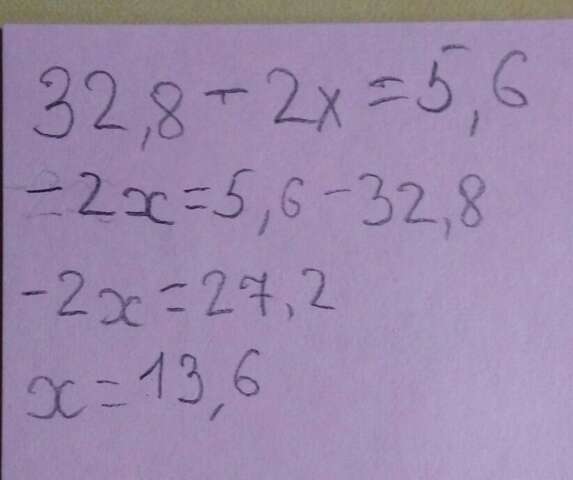 32,8 - 2x = 5,6
-2x = 5,6 - 32,8
-2x = 27,2
x = 13,6